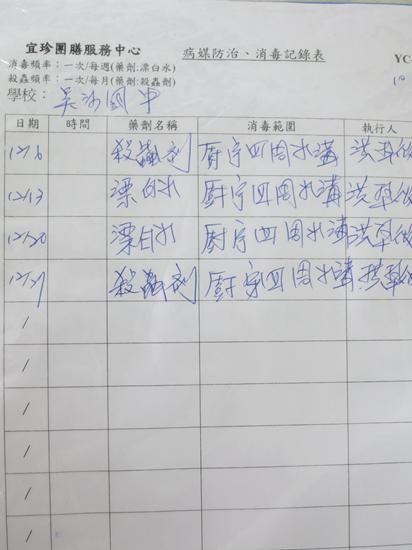 宜珍團膳服務中心 病媒防治、消毒記錄表 YC-
消毒頻率：一次/每週(藥劑:漂白水)
殺蟲頻率：一次/每月(藥劑:殺蟲劑)
學校： 吳沙國中
日期 時間 藥劑名稱 消毒範圍 執行人
12/6 殺蟲劑 廚房四周水溝 洪
12/13 漂白水 廚房四周水溝 洪
12/20 漂白水 廚房四周水溝 洪
12/27 殺蟲劑 廚房四周水溝 洪
/
/
/
/
/